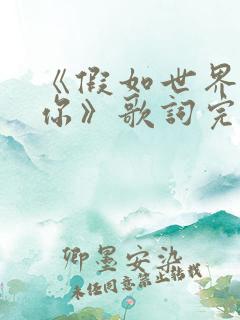 《假如世界
你》歌詞完
卿墨安染
未经同意禁止转载